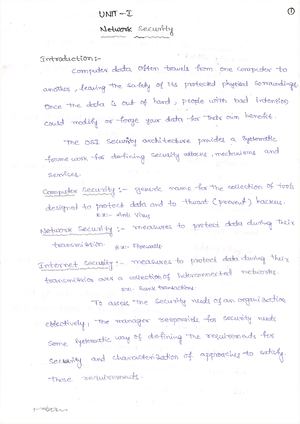 UNIT - I
①
Network Security
Introduction :-
Computer data often travels from one computer to
another, leaving the safety of its protected physical surroundings
Once the data is out of hand, people with bad intention
could modify or forge your data for their own benefit.
The OSI Security architecture provides a systematic
frame work for defining security attacks, mechanisms and
services.
Computer Security :- generic name for the collection of tools
designed to protect data and to thwart (prevent) hackers.
ex:- Anti Virus
Network Security :- measures to protect data during their
transmission. ex:- Firewalls
Internet Security :- measures to protect data during their
transmission over a collection of interconnected networks.
ex:- Bank transactions.
To assess the security needs of an organization
effectively, the manager responsible for security needs
some systematic way of defining the requirements for
security and characterization of approaches to satisfy
those requirements.